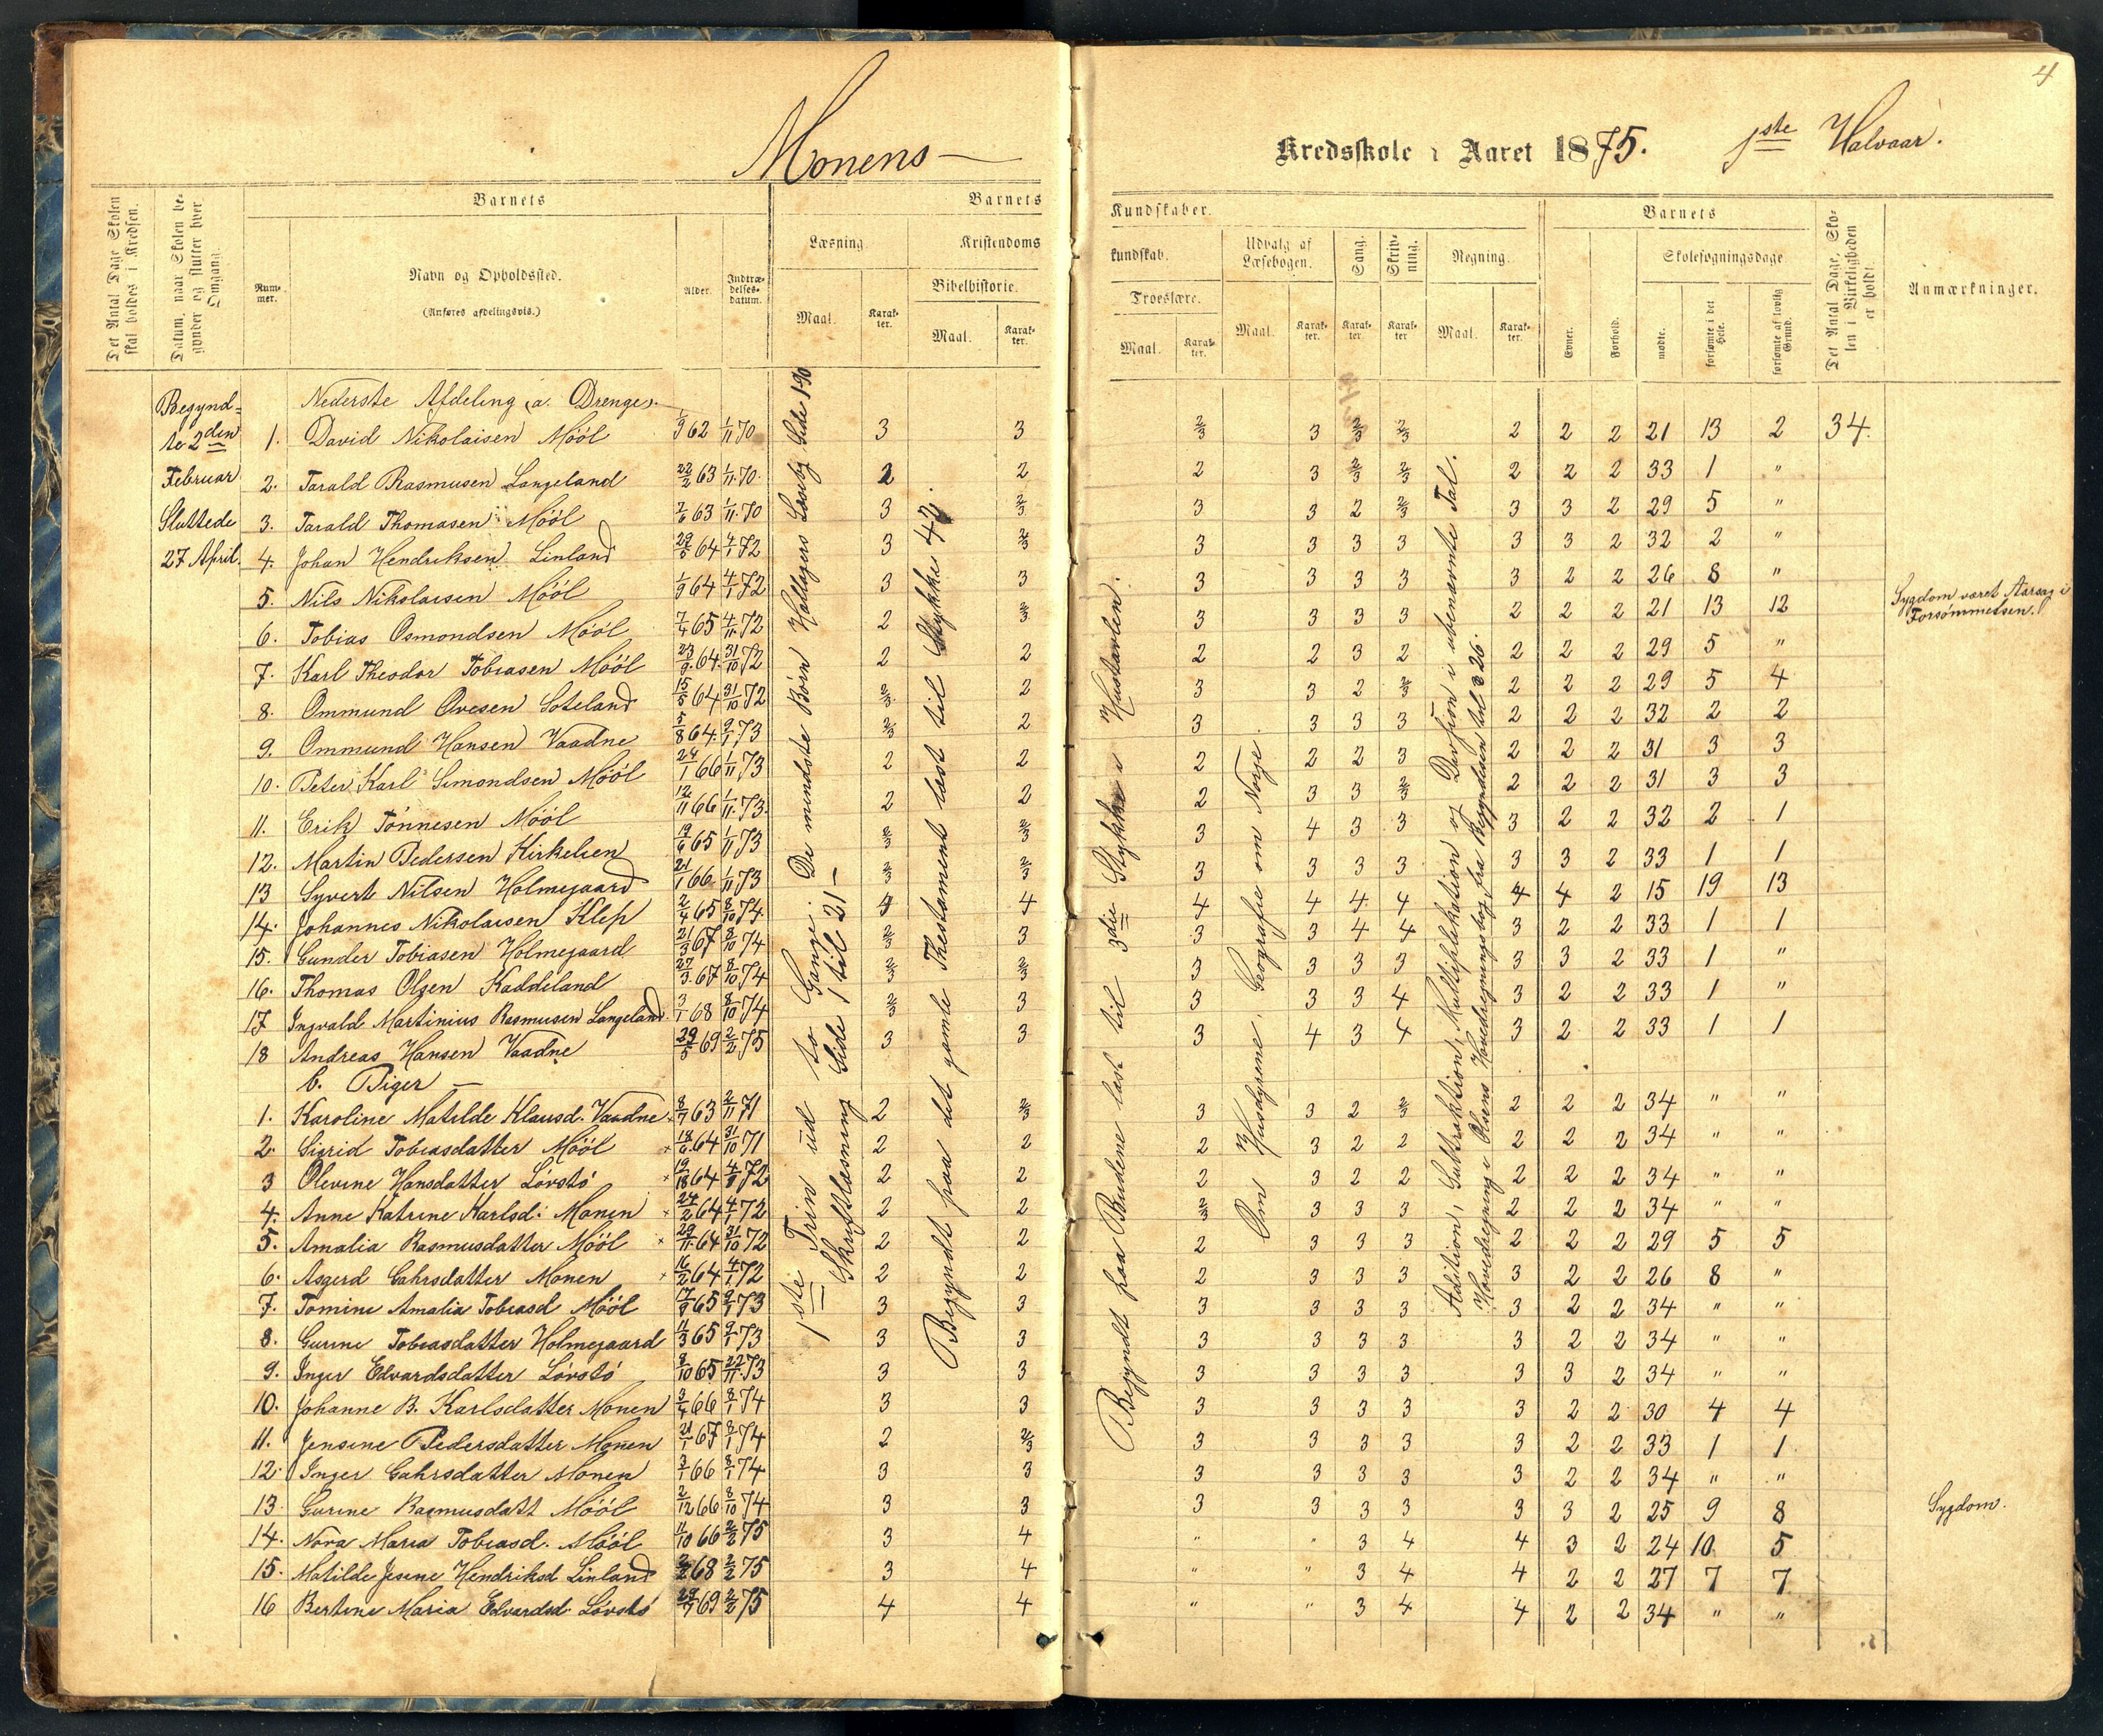 4
Monens
Kredsskole i Aaret 1875. 1ste Halvaar.
Det Antal Dage Skolen skal holdes i Kredsen.
Datum, naar Skolen begynder og slutter hver Omgang.
Barnets
Nummer.
Navn og Opholdssted.
(Anføres afdelingsvis.)
Alder.
Indtrædelses-datum.
Barnets
Kundskaber.
Læsning
Maal.
Karakter.
Kristendoms kundskab.
Bibelhistorie.
Maal.
Karakter.
Troeslære.
Maal.
Karakter.
Udvalg af Læsebogen.
Maal.
Karakter.
Sang.
Karakter
Skrivning.
Karakter
Regning.
Maal.
Karakter.
Barnets
Evner.
Forhold.
Skolesøgningsdage
mødte.
forsømte i det Hele.
forsømte af lovlig Grund.
Det Antal Dage, Skolen i Virkeligheden er holdt.
Anmærkninger.
Begyndte 2den Februar
Sluttede 27 April.
Nederste Afdeling (a. Drenge).
1. David Nikolaisen Móól 1/9 62 1/11 70 3 3 2/3 3 2/3 2/3 2 2 2 21 13 2 34.
2. Tarald Rasmusen Langeland 22/2 63 1/11 70. 2 2 2 3 2/3 2/3 2 2 2 33 1 "
3. Tarald Thomasen Móól 7/6 63 1/11 70 3 2/3 3 3 2 2/3 3 3 2 29 5 "
4. Johan Hendriksen Linland 29/5 64 4/1 72 3 2/3 3 3 3 3 3 3 2 32 2 "
5. Nils Nikolaisen Móól 1/9 64 4/1 72 3 3 3 3 3 3 3 2 2 26 8 "
6. Tobias Osmondsen Móól 7/4 65 4/11 72 2 2/3 3 3 3 3 2 2 2 21 13 12 Sygdom været Aarsag i Forsømmelsen.
7. Karl Theodor Tobiasen Móól 23/9 64. 31/10 72 2 2 2 2 3 2 2 2 2 29 5 "
8. Ommund Ovesen Soteland 15/5 64 31/10 72 2/3 2 3 3 2 2/3 2 2 2 29 5 4
9. Ommund Hansen Vaadne 5/8 64. 9/1 73 2/3 2 3 3 3 3 2 2 2 32 2 2
10. Peter Karl Simondsen Móól 24/1 66 1/11 73 2 2 2 2 2 3 2 2 2 31 3 3
11. Erik Tónnesen Móól 12/11 66 1/11 73. 2 2 2 3 3 2/3 2 2 2 31 3 3
12. Martin Pedersen Kirkelien 19/6 65 1/11 73 2/3 2/3 3 4 3 3 3 2 2 32 2 1
13 Syvert Nilsen Holmegaard 21/1 66 1/11 73 2/3 2/3 3 3 3 3 3 3 2 33 1 1
14. Johannes Nikolaisen Klep 2/4 65 8/10 74 4 4 4 4 4 4 4 4 2 15 19 13
15. Gunder Tobiasen Holmegaard 21/3 67 8/10 74 2/3 3 3 3 4 4 3 2 2 33 1 1
16. Thomas Olsen Kaddeland 27/3 67 8/10 74 2/3 2/3 3 3 3 3 3 3 2 33 1 "
17 Ingvald Martinius Rasmusen Langeland 3/1 68 8/10 74 2/3 3 3 3 3 4 3 2 2 33 1 "
18 Andreas Hansen Vaadne 29/5 69 2/2 75 3 3 3 4 3 4 3 2 2 33 1 1
b. Piger
1. Karoline Matilde Klausd. Vaadne 8/7 63 2/11 71 2 2/3 3 3 2 2/3 2 2 2 34 " "
2. Sigrid Tobiasdatter Móól 18/6 64 31/10 71 2 2 2 3 2 2 2 2 2 34 " "
3 Olevine Hansdatter Lóvstó 64 72 2 2 2 3 2 2 2 2 2 34 " "
4. Anne Katrine Karlsd. Monen 24/2 64 4/1 72 2 2 2/3 3 3 3 2 2 2 34 " "
5. Amalia Rasmusdatter Móól 29/11 64 31/10 72 2 2 2 3 3 3 2 2 2 29 5 5
6. Asgerd Gahrsdatter Monen 16/2 64 4/1 72 2 2 2 3 3 3 3 2 2 26 8 "
7. Tomine Amalia Tobiasd Móól 17/9 65 9/1 73 3 3 3 3 3 3 3 2 2 34 " "
8. Gurine Tobiasdatter Holmegaard 11/3 65 9/1 73 3 3 3 3 3 3 3 2 2 34 " "
9. Inger Edvardsdatter Lóvstó 8/10 65 22/11 73 3 3 3 3 3 3 3 3 2 34 " "
10. Johanne B. Karlsdatter Monen 3/4 66 8/1 74 3 3 3 3 3 3 3 2 2 30 4 4
11. Jensine Pedersdatter Monen 21/1 67 8/1 74 2 2/3 3 3 3 3 3 2 2 33 1 1
12. Inger Gahrsdatter Monen 3/1 66 8/1 74 3 3 3 3 3 3 3 2 2 34 " "
13. Gurine Rasmusdatt Móól 2/12 66 8/10 74 3 3 3 3 3 3 3 3 2 25 9 8 Sygdom.
14. Nora Maria Tobiasd. Móól 11/10 66 2/2 75 3 4 " " 3 4 4 3 2 24 10 5
15. Matilde Jesine Hendriksd Linland 68 2/2 75 3 4 " " 3 4 4 2 2 27 7 7
16 Bertine Maria Edvardsd. Lóvstó 29/7 69 2/2 75 4 4 " " 3 4 4 2 2 34 " "
1ste Trin ud to Gange. De mindste Børn Hallagers Læseby Side 1-90
Skriftlæsning Side 1 til 21 –
Begyndt fraa det gamle Thestament læst til Stykke 42.
Begyndt fraa Budene læst til 3die Stykke i Hustavlen.
Om Husdyrene, Geografie om Norge.
Adition, Subtraktion, Multiplikation og Divisjon i ubenævnte Tal.
Hovedregning i Olsens Hovedregningsbog fra Begyndelsen til § 26.